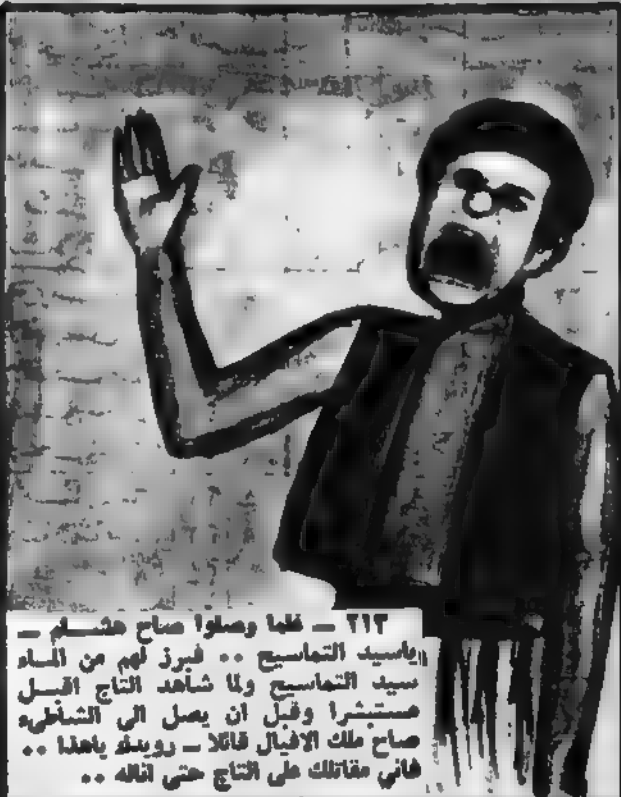 ٢١٣ — فلما وصلوا صاح هشـــام —
ياسيد التماسيح ٠٠ فبرز لهم من المـاء
سيد التماسيح ولما شاهد التاج اقبـــل
مستبشرا وقبل ان يصل الى الشاطىء
صاح ملك الافيال قائلا — رويدك ياهذا ٠٠
فاني مقاتلك على التاج حتى اناله ٠٠